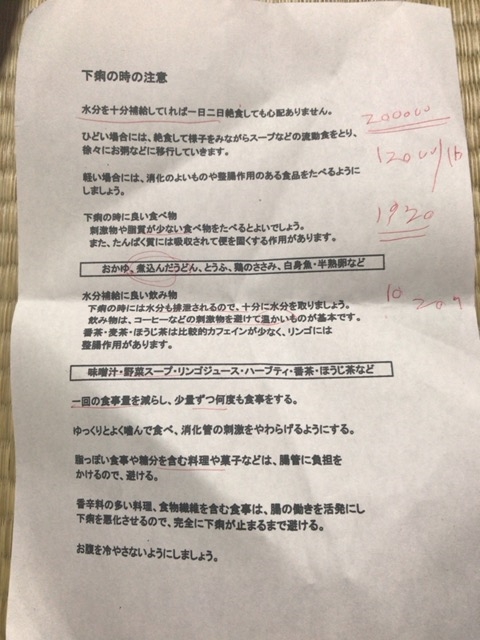 下痢の時の注意
水分を十分補給していれば一日二日絶食しても心配ありません。
200000
ひどい場合には、絶食して様子をみながらスープなどの流動食をとり、
徐々にお粥などに移行していきます。
軽い場合には、消化のよいものや整腸作用のある食品をたべるように
しましょう。
下痢の時に良い食べ物
1920
刺激物や脂質が少ない食べ物をたべるとよいでしょう。
また、たんぱく質には吸収されて便を固くする作用があります。
おかゆ、煮込んだうどん、とうふ、鶏のささみ、白身魚・半熟卵など
水分補給に良い飲み物
10
下痢の時には水分も排泄されるので、十分に水分を取りましょう。
飲み物は、コーヒーなどの刺激物を避けて温かいものが基本です。
番茶・麦茶・ほうじ茶は比較的カフェインが少なく、リンゴには
整腸作用があります。
味噌汁・野菜スープ・リンゴジュース・ハーブティ・番茶・ほうじ茶など
一回の食事量を減らし、少量ずつ何度も食事をする。
ゆっくりとよく噛んで食べ、消化管の刺激をやわらげるようにする。
脂っぽい食事や糖分を含む料理や菓子などは、腸管に負担を
かけるので、避ける。
香辛料の多い料理、食物繊維を含む食事は、腸の働きを活発にし
下痢を悪化させるので、完全に下痢が止まるまで避ける。
お腹を冷やさないようにしましょう。